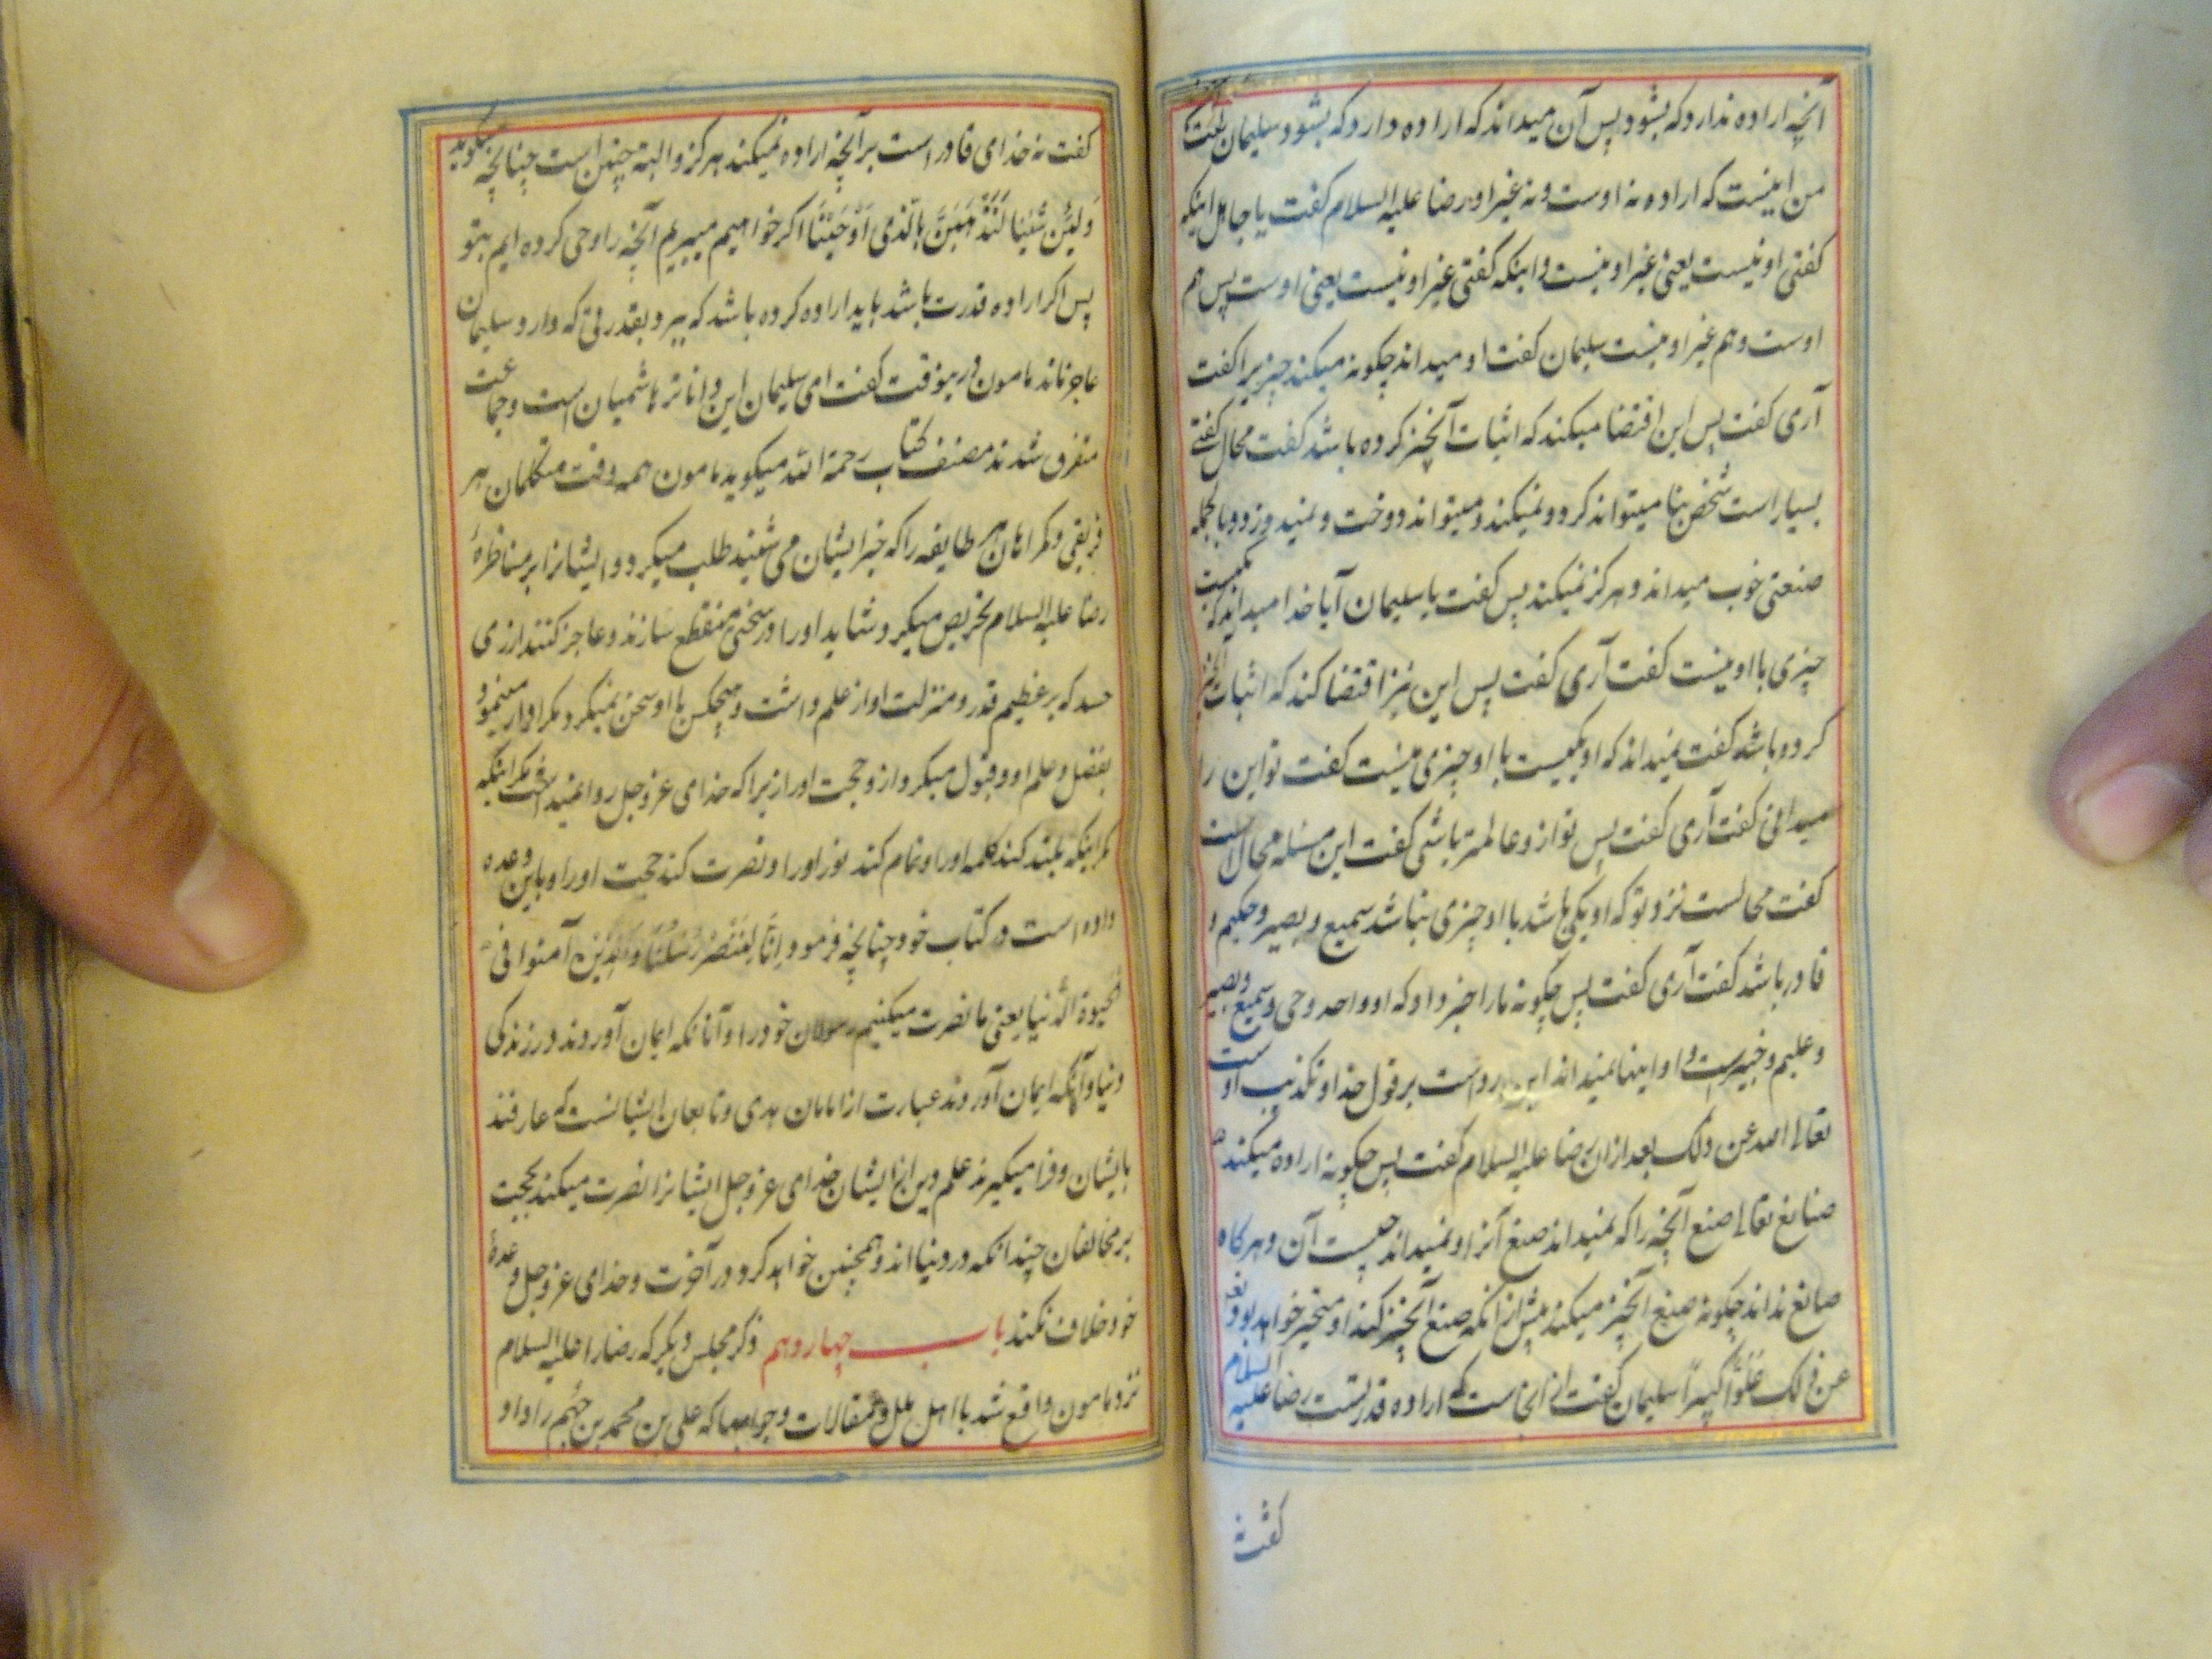 آنچه اراده ندارد که بشود پس آن میداند که اراده دارد که بشود سلیمان گفت که
من اینست که اراده نه اوست و نه غیر او رضا علیه السلام گفت یا جاهل اینکه
گفتی او نیست یعنی غیر او نیست و اینکه گفتی غیر او نیست یعنی اوست پس هم
اوست و هم غیر او نیست سلیمان گفت او میداند چگونه میکند چیزیرا گفت
آری گفت پس این اقتضا میکند که اثبات آنچیز کرده باشد گفت محال گفتی
بسیار است شخص بنا میتواند کرد و نمیکند و میتواند دوخت و نمیدوزد و بالجمله
صنعتی خوب میداند و هرگز نمیکند پس گفت یا سلیمان آیا خدا میداند که یکیست
چیزی با او نیست گفت آری گفت پس این نیز اقتضا کند که اثبات آنچیز
کرده باشد گفت نمیداند که او یکیست با او چیزی نیست گفت تو این را
میدانی گفت آری گفت پس تو از و عالمتر باشی گفت این مسئله محال است
گفت محالست نزد تو که او یکی باشد با او چیزی نباشد سمیع و بصیر و حکیم و
قادر باشد گفت آری گفت پس چگونه ما را خبر داد که او واحد و حی و سمیع و بصیر
و علیم و خبیر است و او اینها نمیداند این رد است بر قول خدا و تکذیب او است
تعالی الله عن ذلک بعد ازان رضا علیه السلام گفت پس چگونه اراده میکند
صنایع تعالی صنع آنچه را که نمیداند صنع آنرا و نمیداند چیست آن و هرگاه
صانع نداند چگونه صنع آنچیز میکند پیش از انکه صنع آنچیز کند او متحیر خواهد بود
عن ذلک علوا کبیرا سلیمان گفت اراده قدرتست رضا علیه السلام
گفت
گفت نه خدای قادر است بر آنچه اراده نمیکند هرگز و البته چنین است چنانچه میگوید
وَلَئِن شِئْنَا لَنَذْهَبَنَّ بِالَّذِی أَوْحَیْنَا اگر خواهیم میبریم آنچه را وحی کرده ایم بتو
پس اگر اراده قدرت باشد باید اراده کرده باشد که ببرد بقدرتی که دارد سلیمان
عاجز ماند مامون درینوقت گفت ای سلیمان این داناتر هاشمیان است و جماعت
متفرق شدند مصنف کتاب رحمة الله میگوید مامون همه وقت متکلمان هر
فریقی و گمراهان هر طایفه را که خبر ایشان می شنید طلب میکرد و ایشانرا بر مناظرهٔ
رضا علیه السلام تحریص میکرد شاید او را در سخنی منقطع سازند و عاجز کنند از زی
حسد که بر عظیم قدر و منزلت او از علم داشت و هیچکس با او سخن نمیکرد مگر اقرار مینمود
بفضل و علم او و قبول میکرد از و حجت او را زیرا که خدای عز و جل روا نمیداشت مگر اینکه
مگر اینکه بلند کند کلمه او را و تمام کند نور او را و نصرت کند حجت او را و باین وعده
داده است در کتاب خود چنانچه فرمود إِنَّا لَنَنْصُرُ رُسُلَنَا وَالَّذِینَ آمنوا فی
الحیوة الدنیا یعنی ما نصرت میکنیم رسولان خود را و آنانکه ایمان آوردند در زندگی
دنیا و آنکه ایمان آوردند عبارت از امامان هدی و تابعان ایشانست که عارفند
بایشان و فرا میگیرند علم دین از ایشان خدای عز و جل ایشانرا نصرت میکند بحجت
بر مخالفان چندانکه در دنیا اند و همچنین خواهد کرد در آخرت و خدای عز و جل وعدهٔ
خود خلاف نکند باب چهاردهم ذکر مجلس دیگر که رضا را علیه السلام
نزد مامون واقع شد با اهل ملل و مقالات و جوابها که علی بن محمد بن جهم را داد